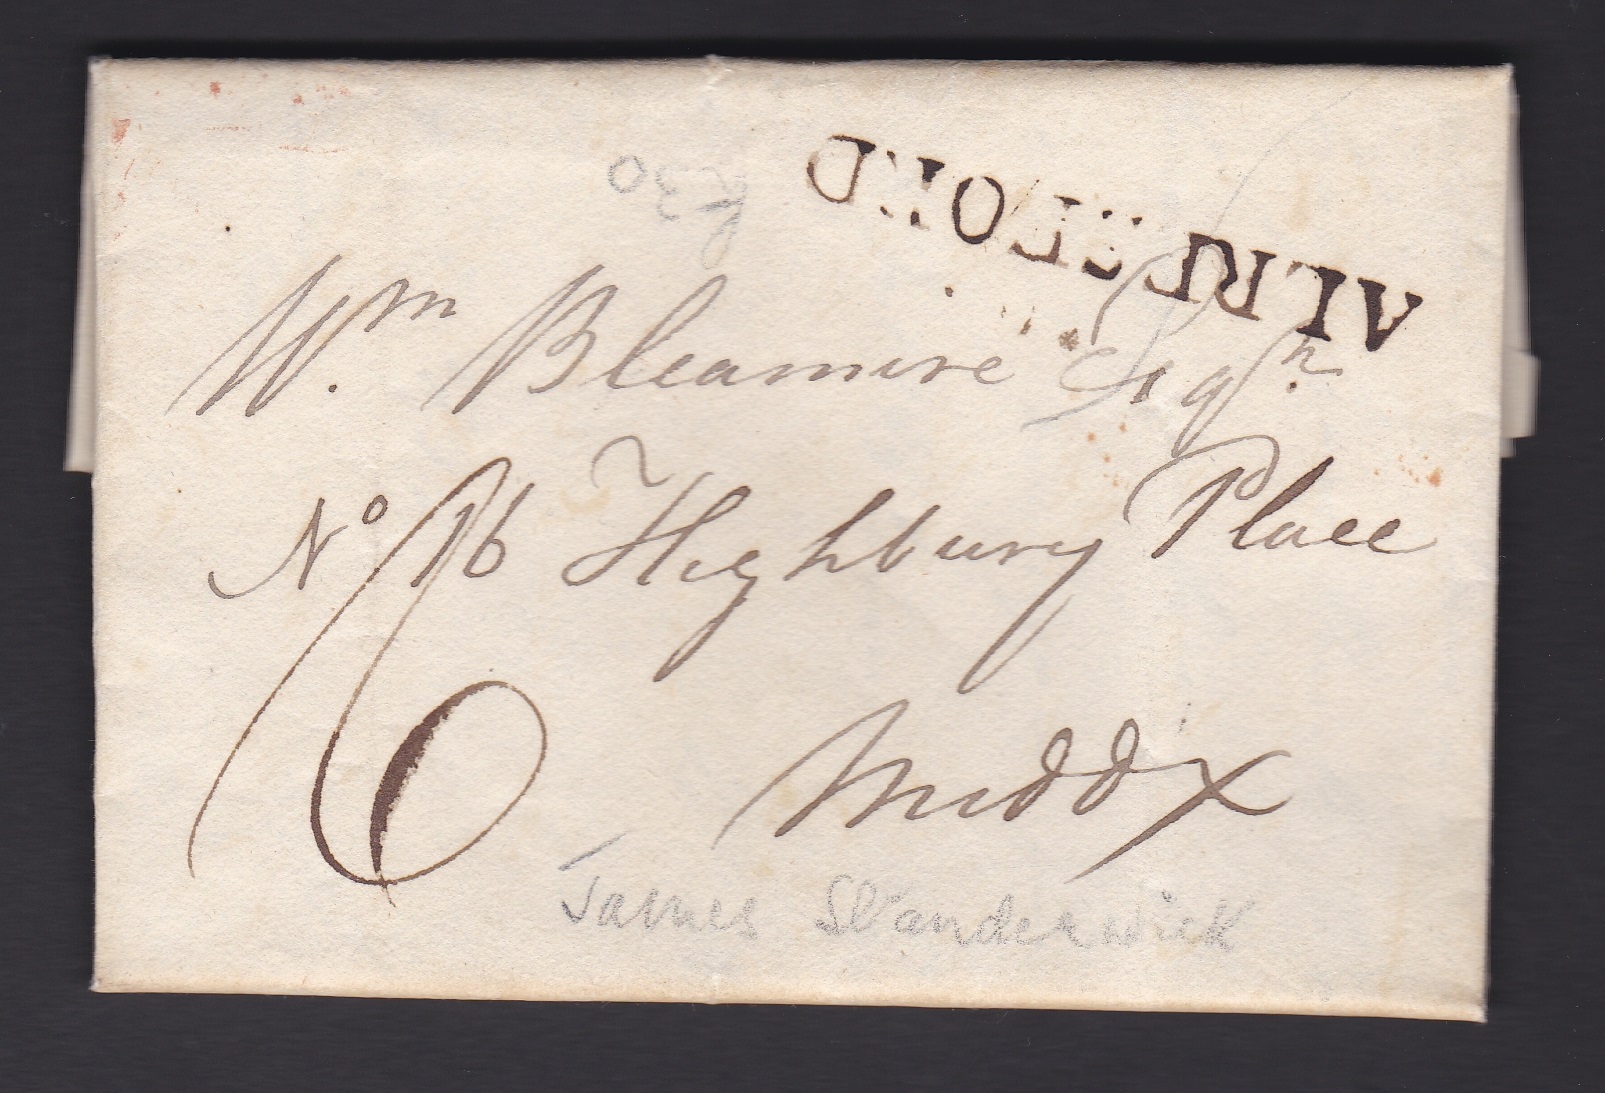 ALRESFORD
£30
Wm. Bleamire Esqr.
No 16 Highbury Place
6
Middx
James Standerwick